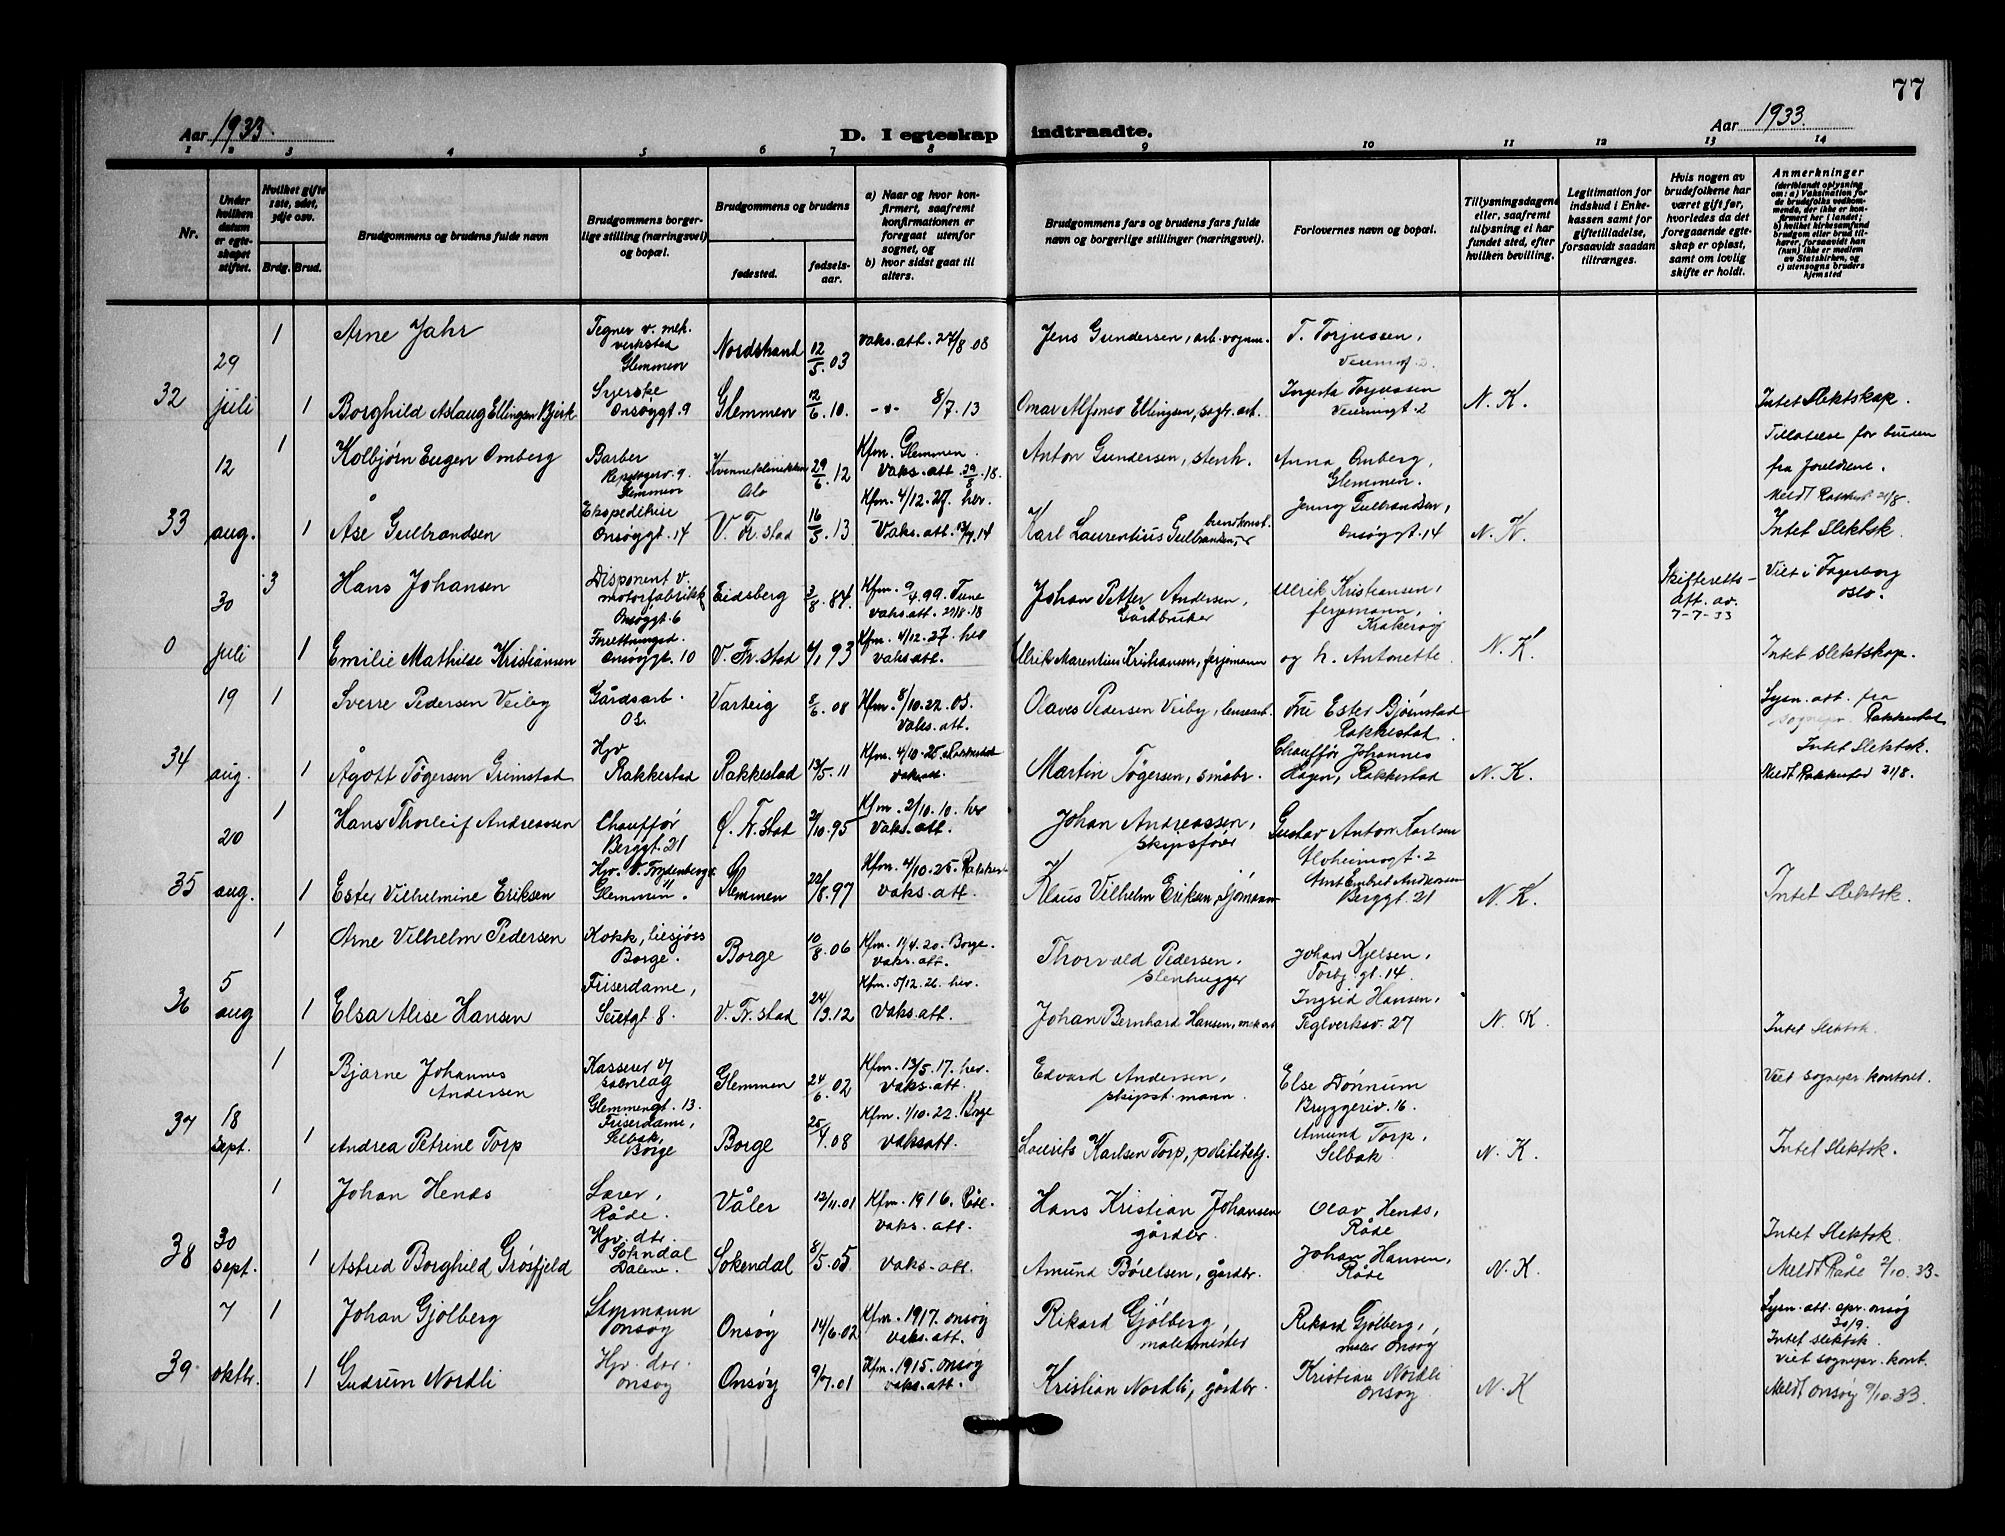 77
Aar 1933.
D. I egteskap indtraadte.
Aar 1933.
1 2 3 4 5 6 7 8 9 10 11 12 13 14
Nr.
Under hvilken datum er egteskapet stiftet.
Hvilket gifte 1ste, 2det, 3dje osv.
Brdg. Brud.
Brudgommens og brudens fulde navn
Brudgommens borgerlige stilling (næringsvei) og bopæl.
Brudgommens og brudens
fødested.
fødselsaar.
a) Naar og hvor konfirmert, saafremt konfirmationen er foregaat utenfor sognet, og
b) hvor sidst gaat til alters.
Brudgommens fars og brudens fars fulde navn og borgerlige stillinger (næringsvei).
Forlovernes navn og bopæl.
Tillysningsdagene eller, saafremt tillysning ei har fundet sted, efter hvilken bevilling.
Legitimation for indskud i Enkekassen samt for giftetilladelse, forsaavidt saadan tiltrænges.
Hvis nogen av brudefolkene har været gift før, hvorledes da det foregaaende egteskap er opløst, samt om lovlig skifte er holdt.
Anmerkninger
(deriblandt oplysning om: a) Vaksination for de brudefolks vedkommende, der ikke er konfirmert her i landet; b) hvilket kirkesamfund brudgom eller brud tilhører, forsaavidt han (hun) ikke er medlem av Statskirken, og c) utensogns bruders hjemsted
1 Arne Jahr Tegner v. mek. verksted Glemmen Nordstrand 12/5.03 Vaks. att. 27/8 08 Jens Gundersen, arb. vognm. T. Torjussen,
32 29 juli 1 Borghild Aslaug Ellingsen Bjerk Syerske Onsøygt. 9 Glemmen 12/6.10. -"- 8/7.13 Omar Alfonso Ellingsen, sagb. arb. Ingerta Torjussen Veiemogt. 2 N. K. Intet Slektskap.
12 1 Kolbjørn Eugen Omberg Barber Glemmen Kvinneklinikken Oslo 29/6.12 Kfm. Glemmen. Vaks. att. 29/8.18. Anton Gundersen, stenh. Anna Omberg, Glemmen. Tillatelse for bruden fra foreldrene. Meldt Rakkest. 21/8.
33 aug. 1 Åse Gulbrandsen Ekspeditrise Onsøygt. 14 V. Fr. stad 16/5.13 Kfm. 4/12.27. her. Vaks. att. 13/9.14 Karl Laurentius Gulbrandsen, Jenny Gulbrandsen, Onsøygt. 14 N. K. Intet Slektsk.
30 3 Hans Johansen Disponent v. motorfabrikk Onsøygt. 6 Eidsberg 3/8.84. Kfm. 9/4.99. Tune vaks. att. 29/8.18 Johan Petter Andersen, Gårdbruker Ulrik Kristiansen, fergemann, Kråkerøy Skifteretts-att. av. 7-7-33 Viet i Fagerborg Oslo.
0 juli 1 Emilie Mathilde Kristiansen Forretningsd. Onsøygt. 10 V. Fr. stad 4/1 93 Kfm. 4/12.27. her vaks. att. Ulrik Marentius Kristiansen, fergemann og h. Antonette. N. K. Intet slektskap.
19 1 Sverre Pedersen Veiby Gårdsarb. Varteig 8/6.08 Kfm. 8/10.22. Vaks. att. Olaves Pedersen Veiby, lensearb. Fru Ester Bjørnstad Rakkestad. Lysn. att. fra sognepr. Rakkestad
34 aug. 1 Ågott Tøgersen Grimstad Hjv Rakkestad Rakkestad 13/5.11 Kfm. 4/10.25 Rakkestad vaks att. Martin Tøgersen, småbr. Chauffør Johannes Hagen, Rakkestad N. K. Intet Slektsk. Meldt Rakkestad 21/8.
20 1 Hans Thorleif Andreassen Chauffør Berggt. 21 Ø. Fr. stad 2/10.95 Kfm. 2/10.10. her Vaks. att. Johan Andreassen, skipsfører Gustav Anton Karlsen
35 aug. 1 Ester Vilhelmine Eriksen Hjv. Glemmen. Glemmen 22/8.97 Kfm. 4/10.25. Rakkest. vaks. att. Klaus Vilhelm Eriksen, sjømann Arnt Embret Andresen Berggt. 21 N. K. Intet Slektsk.
1 Arne Vilhelm Pedersen Kokk, tilsjøss Borge. Borge 10/8.06 Kfm. 11/4.20. Borge. vaks. att. Thorvald Pedersen, stenhugger Johan Kjelsen, Torbj. gt. 14.
36 5 aug 1 Elsa Alise Hansen Friserdame, Seutgt 8. V. Fr. stad 24/9.12 Kfm. 5/12.26. her. vaks. att. Johan Bernhard Hansen, mek arb Ingrid Hansen, Teglverksv. 27 N. K. Intet slektsk.
1 Bjarne Johannes Andersen Kasserer v/ Glemmengt. 13. Glemmen 24/6.02 Kfm. 13/5.17. her. vaks. att. Edvard Andersen, skipst. mann Else Dørnum Bryggeriv. 16. Viet sognepr. kontoret.
37 18 sept. 1 Andrea Petrine Torp Friserdame, Selbak, Borge Borge 25/4.08 Kfm. 1/10.22. Borge vaks att. Laurits Karlsen Torp, politibetj. Amund Torp, Selbak. N. K. Intet slektsk.
1 Johan Henes Lærer, Råde. Våler 12/11.01 Kfm. 1916. Råde. vaks. att. Hans Kristian Johansen gårdbr. Olav Henes, Råde
38 30 sept. 1 Astrid Borghild Grøsfjeld Hjv. dtr. Sokndal Dalene. Sokendal 8/5.05 vaks. att. Amund Børelsen, gårdbr. Johan Hansen, Råde N. K. Intet Slektsk. Meldt Råde 2/10.33.
7 1 Johan Gjølberg Styrmann Onsøy Onsøy 14/6.02 Kfm. 1917. Onsøy vaks. att. Rikard Gjølberg, malermester Rikard Gjølberg, maler Onsøy Lysn. att. spr. Onsøy 30/9. Intet slektsk. viet sognepr. kont.
39 oktbr. 1 Gudrun Nordli Hjv. dtr. Onsøy Onsøy 9/7.01 Kfm. 1915. Onsøy vaks. att. Kristian Nordli, gårdbr. Kristian Nordli Onsøy N. K Meldt Onsøy 9/10.33.